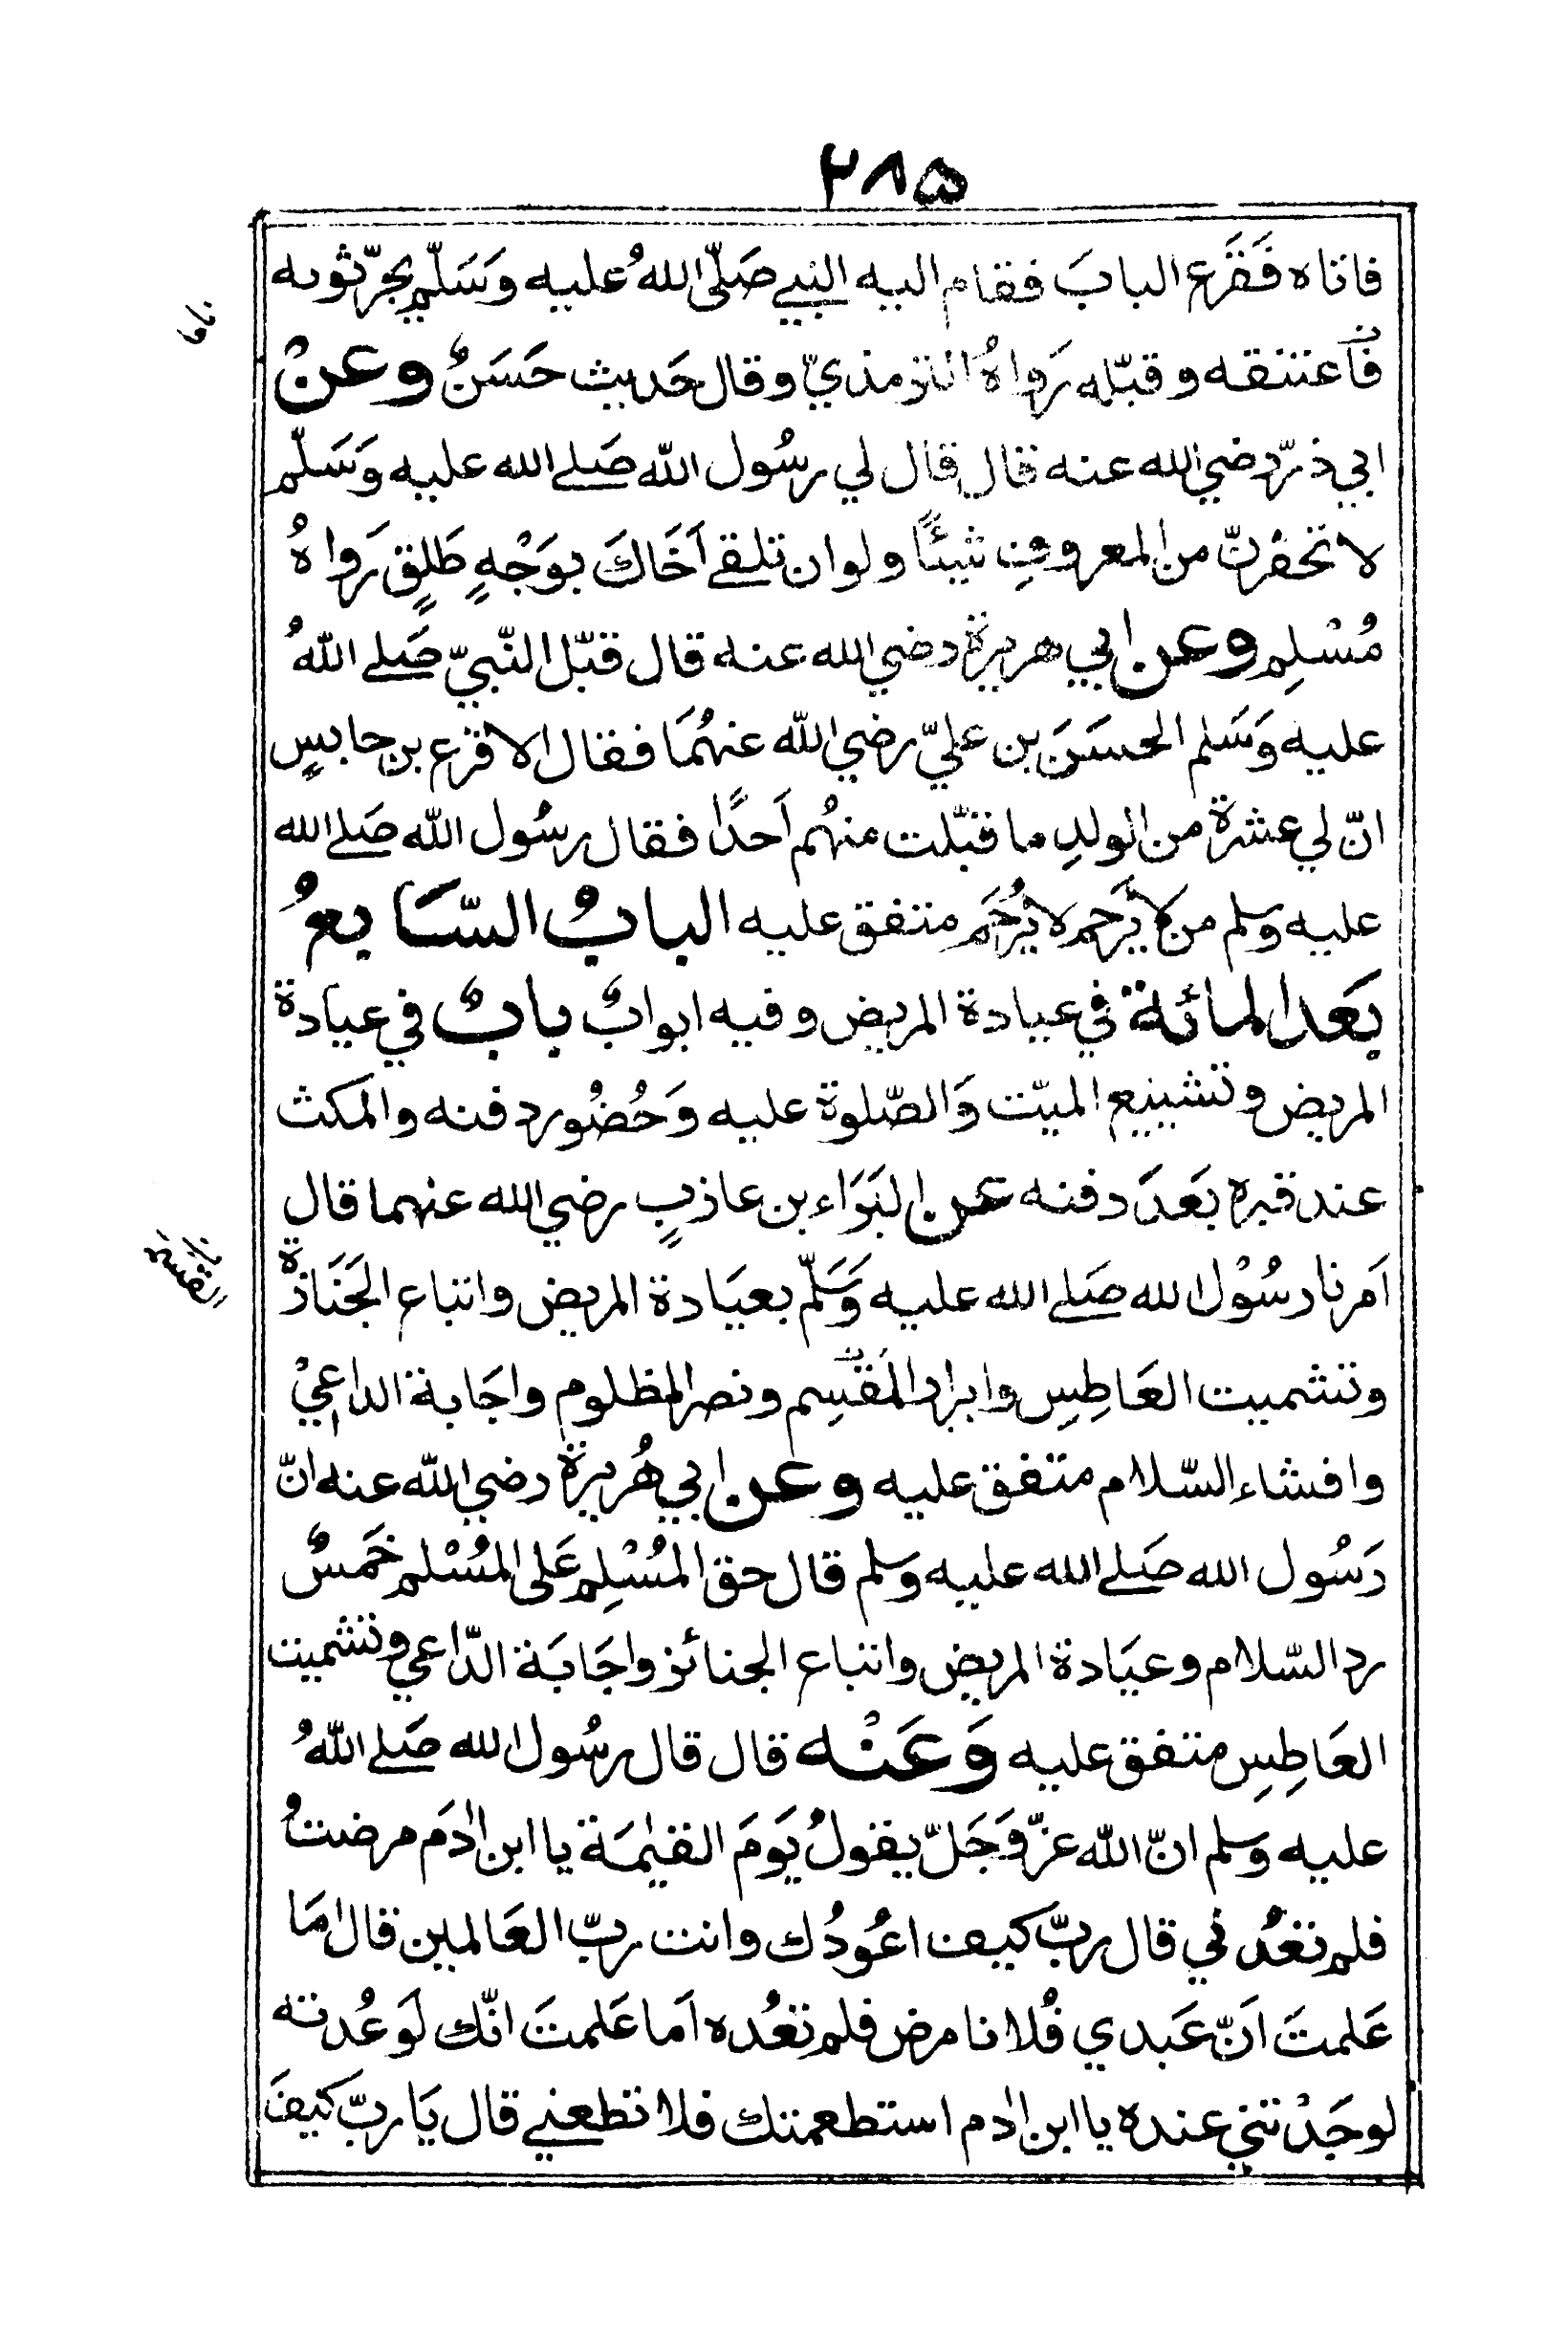 ٢٨٥
فاتاه فَقَرَع البابَ فقام اليه النبي صَلّى اللهُ عليه وَسَلّم يجرّ ثوبه
فاعتنقه وقبّله رَواهُ الترمذيّ وقال حَديث حَسَنٌ وعنْ
ابي ذرّ رضي الله عنه قال قال لي رسُول الله صَلى الله عليه وَسَلّم
لا تحقرنّ من المعروفِ شيئًا ولو ان تلقى اَخَاكَ بوَجْهٍ طَلِقٍ رَواهُ
مُسْلِم وعن ابي هريرة رضي الله عنه قال قبّل النّبيّ صَلى اللهُ
عليه وَسَلم الحسَنَ بن عليّ رضي الله عنهُمَا فقال الاقرع بن حابسٍ
انّ لي عشرة من الولدِ ما قبّلت منهُم اَحدًا فقال رسُول الله صَلى الله
عليه وسَلم من لا يَرحم لا يُرحَم متفق عليه البابُ السّابعُ
بَعد المائة في عيادة المريض وفيه ابوابٌ بابٌ في عيادة
المريض وتشييع الميّت وَالصّلوة عليه وَحُضُور دفنه والمكث
عند قبره بَعدَ دفنه عن البَرَاء بن عاذبٍ رضي الله عنهما قال
اَمرنا رسُوْل الله صَلى الله عليه وَسَلّم بعيَادة المريض واتباع الجَنَازة
وتشميت العَاطِسِ وابرار المُقْسِم ونصر المظلوم واجَابة الداعِيْ
وافشاء السّلام متفق عليه وعن ابي هُريرة رضي الله عنه انّ
رَسُول الله صَلى الله عليه وسَلم قال حق المُسْلِم عَلى المُسْلم خَمسٌ
رد السّلام وعيَادة المريض واتباع الجنائز واجَابَة الدّاعي وتشميت
العَاطِسِ متفق عليه وَعَنْه قال قال رسُول الله صَلى اللهُ
عليه وسَلم انّ الله عزّ وَجَلّ يقولُ يَومَ القيٰمَة يا ابن اٰدَم مرضتُ
فلم تعُدني قال ربّ كيف اعُودُك وانت ربّ العَالمين قال امَا
عَلمتَ اَنّ عَبدي فُلانا مرض فلم تعُده اَما عَلمتَ انّك لَو عُدته
لوجَدْتني عنده يا ابن اٰدم استطعمتك فلا تطعمني قال يَا ربّ كيفَ